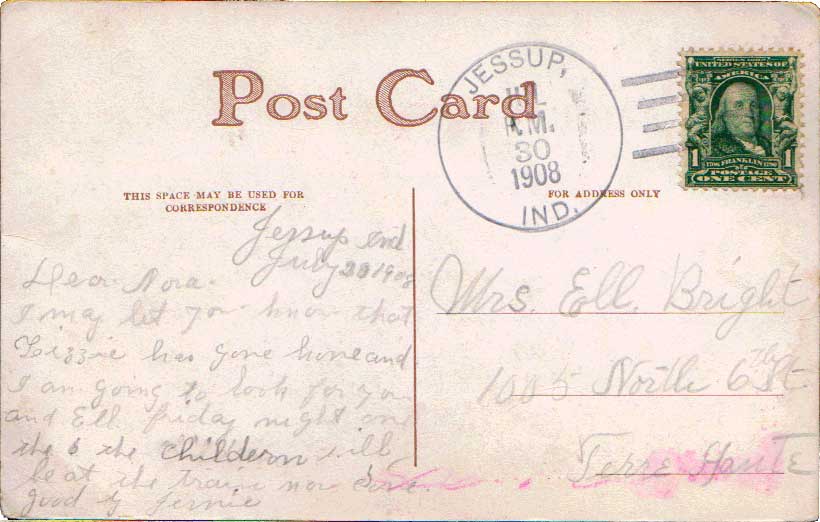 Post Card
JESSUP,
JUL
P.M.
30
1908
IND.
SERIES 1902
UNITED STATES OF
AMERICA
1 1706 FRANKLIN 1790 1
POSTAGE
ONE CENT
THIS SPACE MAY BE USED FOR
CORRESPONDENCE
Jessup Ind
July 1908
Dear Nora.
I may let you know that
Lizzie has gone home and
I am going to look for you
and Ell friday night on
the 6 the childern will
be at the train now
good by
FOR ADDRESS ONLY
Mrs. Ell. Bright
1005 North 6th St
Terre Haute